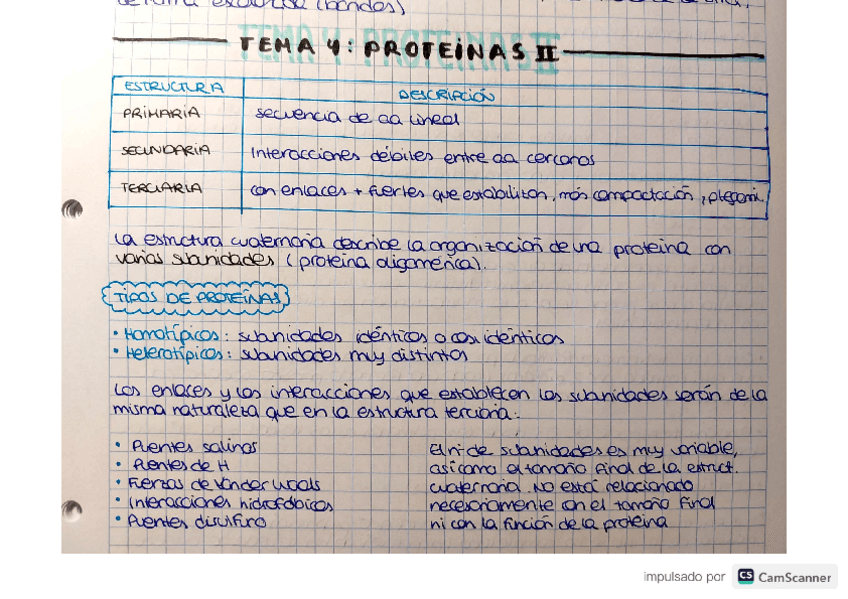 de forma exclusiva (bandas)
TEMA 4: PROTEÍNAS II
ESTRUCTURA DESCRIPCIÓN
PRIMARIA secuencia de aa lineal
SECUNDARIA Interacciones débiles entre aa cercanos
TERCIARIA con enlaces + fuertes que estabilizan, más compactación, plegami.
La estructura cuaternaria describe la organización de una proteína con
varias subunidades (proteína oligomérica).
TIPOS DE PROTEÍNAS
• Homotípicas: subunidades idénticas o casi idénticas
• Heterotípicas: subunidades muy distintas
Los enlaces y las interacciones que establecen las subunidades serán de la
misma naturaleza que en la estructura terciaria:
• Puentes salinos
• Puentes de H
• Fuerzas de Vander Waals
• Interacciones hidrofóbicas
• Puentes disulfuro
El nº de subunidades es muy variable,
así como el tamaño final de la estruct.
cuaternaria. No está relacionado
necesariamente con el tamaño final
ni con la función de la proteína
impulsado por CS CamScanner